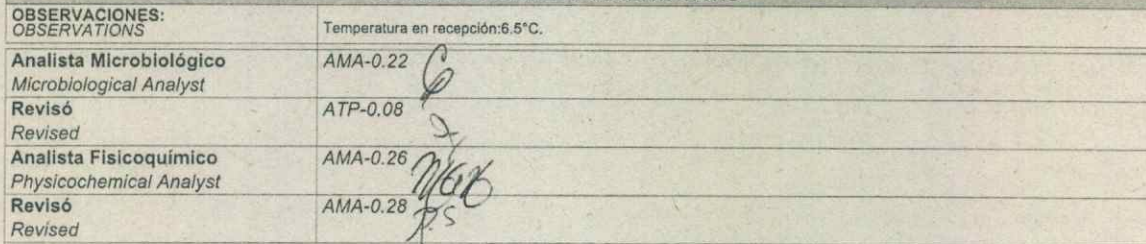 OBSERVACIONES:
OBSERVATIONS
Temperatura en recepción:6.5°C.
Analista Microbiológico
Microbiological Analyst
AMA-0.22
Revisó
Revised
ATP-0.08
Analista Fisicoquímico
Physicochemical Analyst
AMA-0.26
Revisó
Revised
AMA-0.28